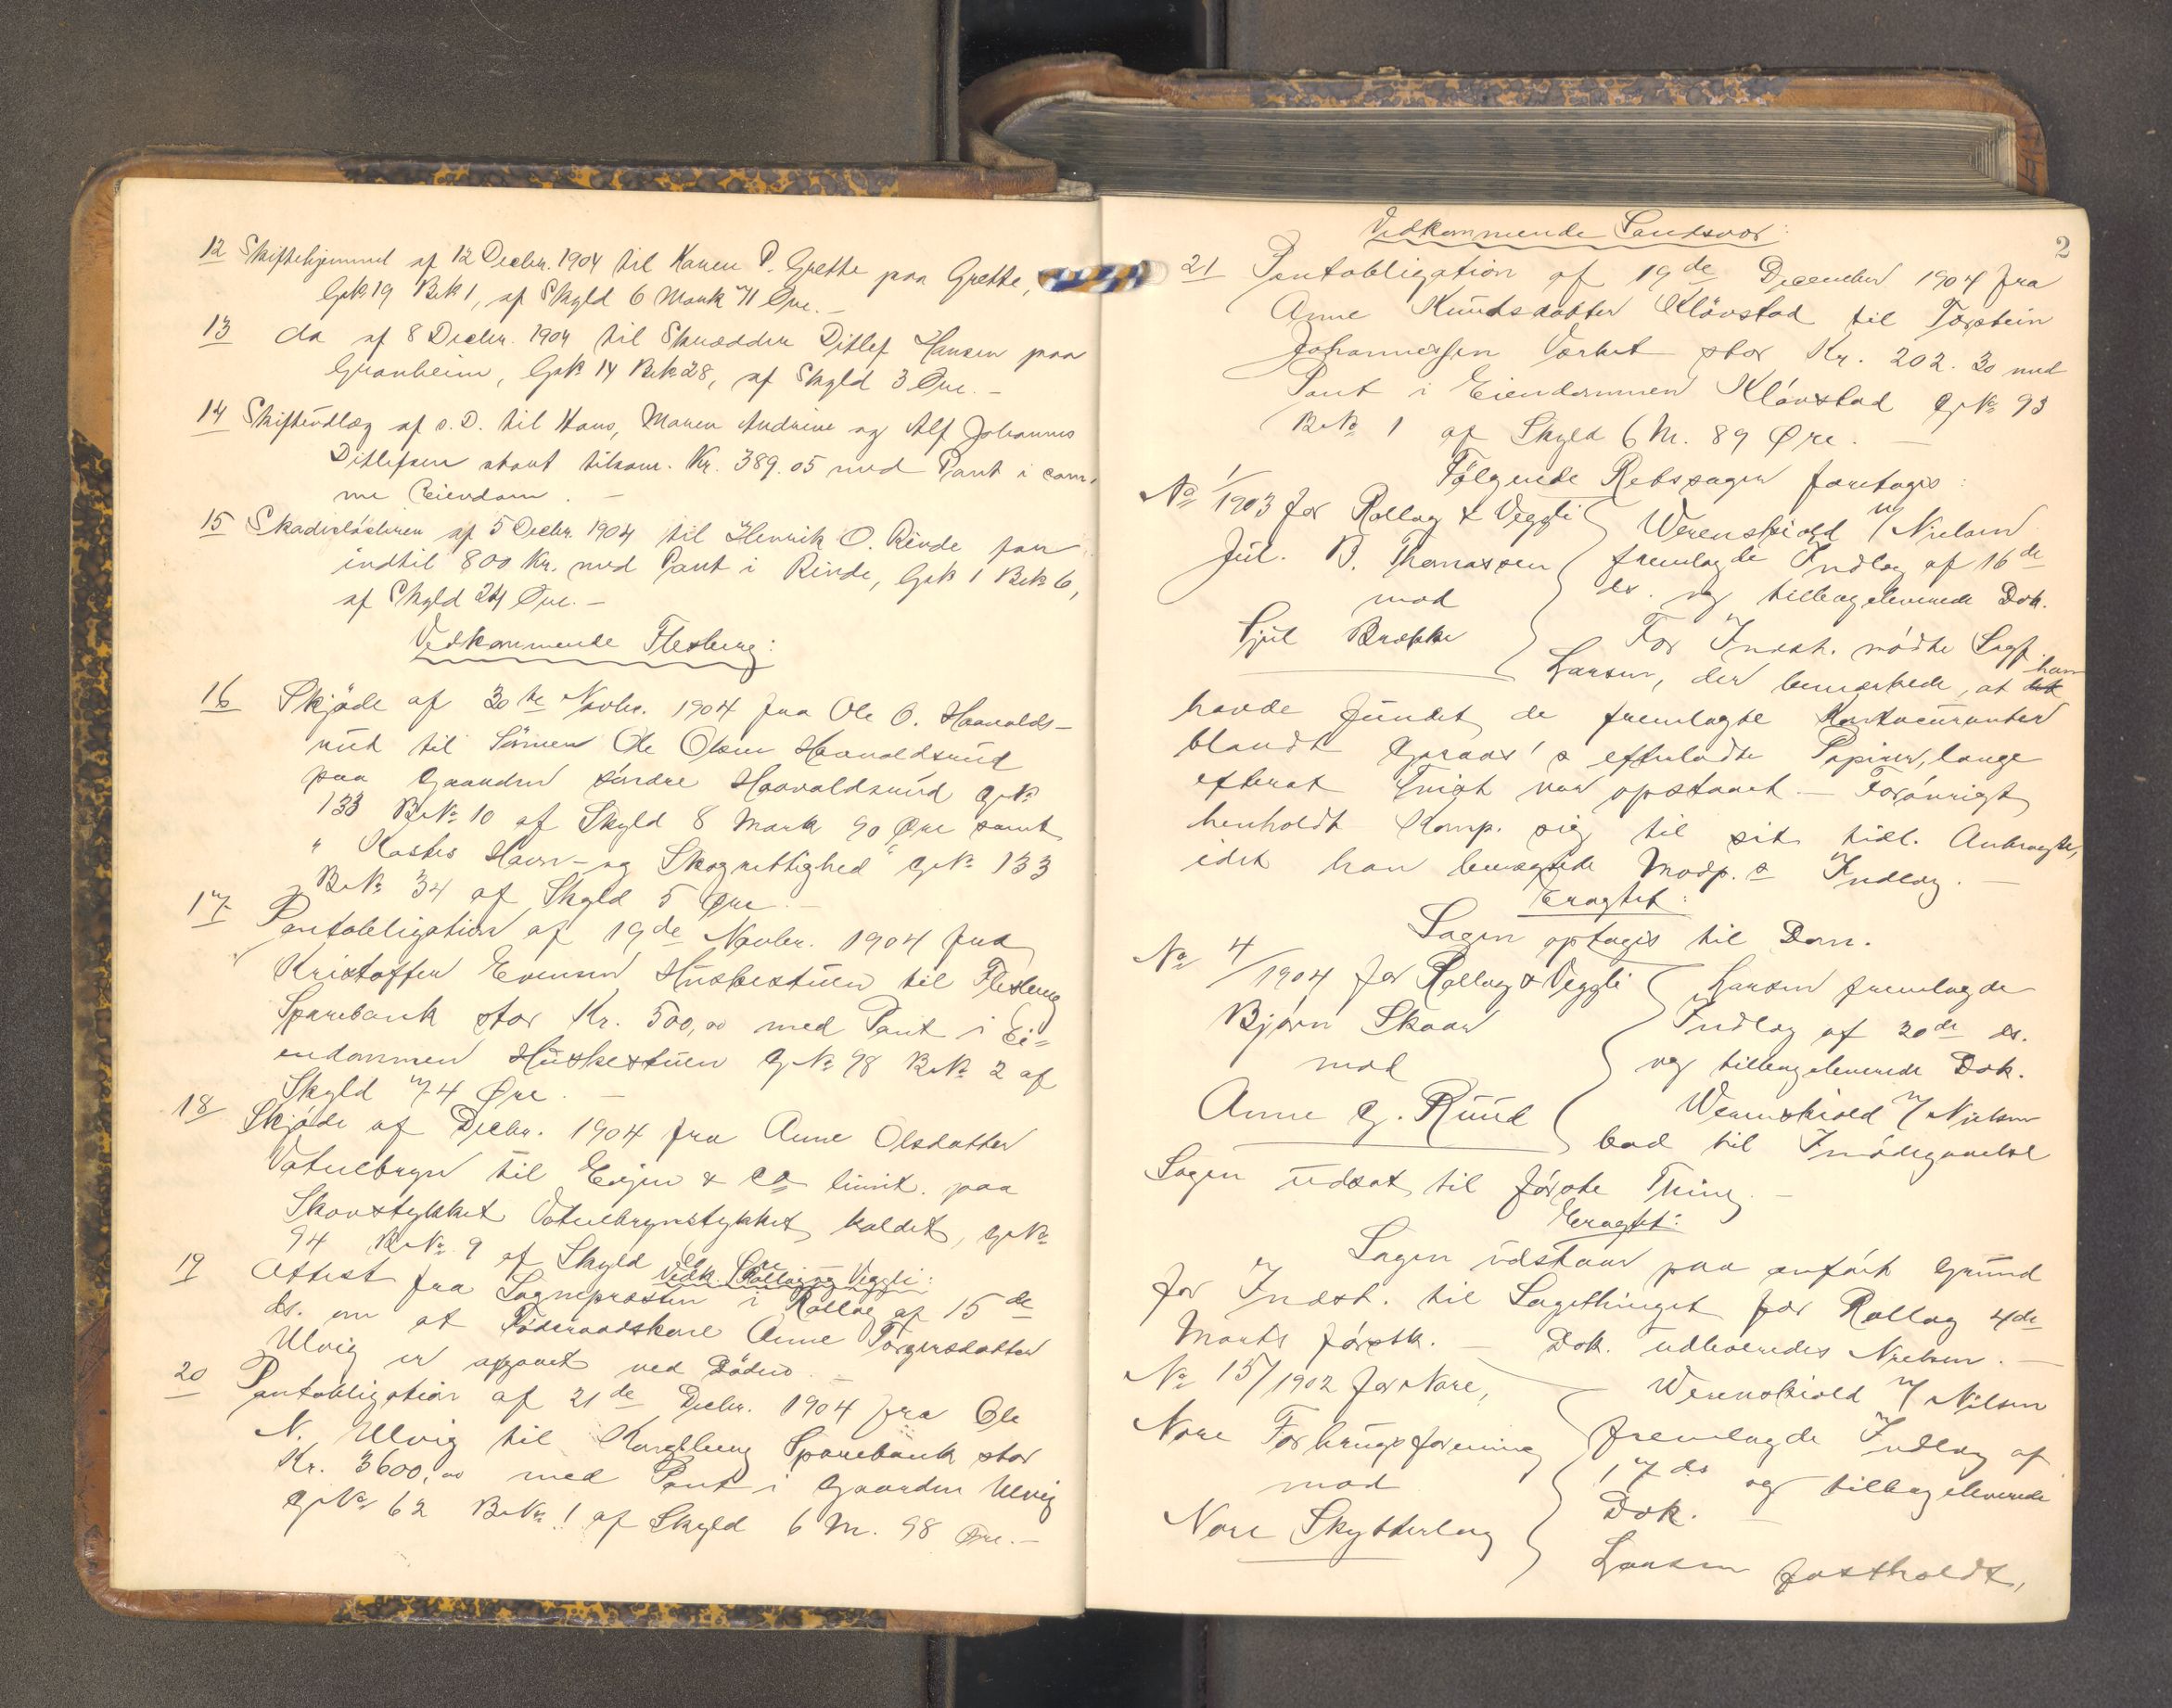 12 Skiftehjemmel af 12 Decbr. 1904 til Karen P. Grette paa Grette,
Gnr. 19 Bnr. 1, af Skyld 6 Mark 71 Øre. –
13 do af 8 Decbr. 1904 til Skrædder Ditlef Hansen paa
Granheim, Gnr. 14 Bnr. 28, af Skyld 3 Øre. –
14 Skifteudlæg af s. D. til Hans, Maren Andrine og Alf Johannes
Ditlefsen stort tilsam. Kr. 389.05 med Pant i sam-
me Eiendom. –
15 Skadesløsbrev af 5 Decbr. 1904 til Henrik O. Rinde for
indtil 800 Kr. med Pant i Rinde, Gnr. 1 Bnr. 6,
af Skyld 24 Øre. –
Vedkommende Flesberg:
16 Skjøde af 30te Novbr. 1904 fra Ole O. Haavalds-
rud til Sønnen Ole Olsen Haavaldsrud
paa Gaarden søndre Haavaldsrud G.No.
133 B.No. 10 af Skyld 8 Mark 90 Øre samt
"Kastes Havn- og Skogrettighed" G.No. 133
B.No. 34 af Skyld 5 Øre. –
17 Pantobligation af 19de Novbr. 1904 fra
Kristoffer Evensen Huskestuen til Flesberg
Sparebank stor Kr. 500,00 med Pant i Ei-
endommen Huskestuen G.No. 98 B.No. 2 af
Skyld 74 Øre. –
18 Skjøde af Decbr. 1904 fra Anne Olsdatter
Vatnebryn til & Co limit. paa
Skovstykket Vatnebrynstykket kaldet, G.No.
94 B.No. 9 af Skyld Øre
Vedk. Rollag og Veggli:
19 Attest fra Sognepresten i Rollag af 15de
ds. om at Føderaadskone Anne Torgersdatter
Ulvig er afgaaet ved Døden. –
20 Pantobligation af 21de Decbr. 1904 fra Ole
N. Ulvig til Kongsberg Sparebank stor
Kr. 3600,00 med Pant i Gaarden Ulvig
G.No. 62 B.No. 1 af Skyld 6 M. 98 Øre. –
2
Vedkommende Sandsvær:
21 Pantobligation af 19de December 1904 fra
Anne Knudsdatter Kløvstad til Torstein
Johannessen Værket stor Kr. 202.30 med
Pant i Eiendommen Kløvstad G.No. 93
B.No. 1 af Skyld 6 M. 89 Øre. –
Følgende Retssager foretoges:
No. 1/1903 for Rollag & Veggli
Jul. B. Thomassen
mod
Sjul Brække
Werenskiold v/ Nielsen
fremlagde Indlæg af 16de
ds. og tilbageleverede Dok.
For Indst. mødte Sagf.
Larsen, der bemærkede, at han
havde fundet de fremlagte Kontocuranter
blandt efterladte Papirer, længe
efterat Tvist var opstaaet. – Forøvrigt
henholdt Komp. sig til sit tidl. Anbragte,
idet han benægtede Modp.s Indlæg. –
Eragtet:
Sagen optages til Dom.
No. 4/1904 for Rollag & Veggli
Bjørn Skaar
mod
Anne G. Ruud
Larsen fremlagde
Indlæg af 20de ds.
og tilbageleverede Dok.
Werenskiold v/ Nielsen
bad til Imødegaaelse
Sagen udsat til første Thing. –
Eragtet:
Sagen udstaar paa anført Grund
for Indst. til Sagethinget for Rollag 4de
Marts førstk. – Dok. udleveredes Nielsen. –
No. 15/1902 for Nore,
Nore Forbrugsforening
mod
Nore Skytterlag
Werenskiold v/ Nilsen
fremlagde Indlæg af
17 ds og tilbageleverede
Dok. –
Larsen fastholdt,